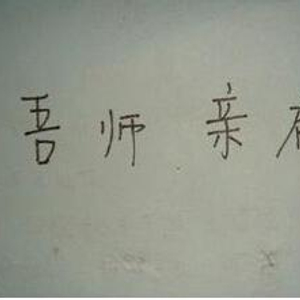 吾师亲